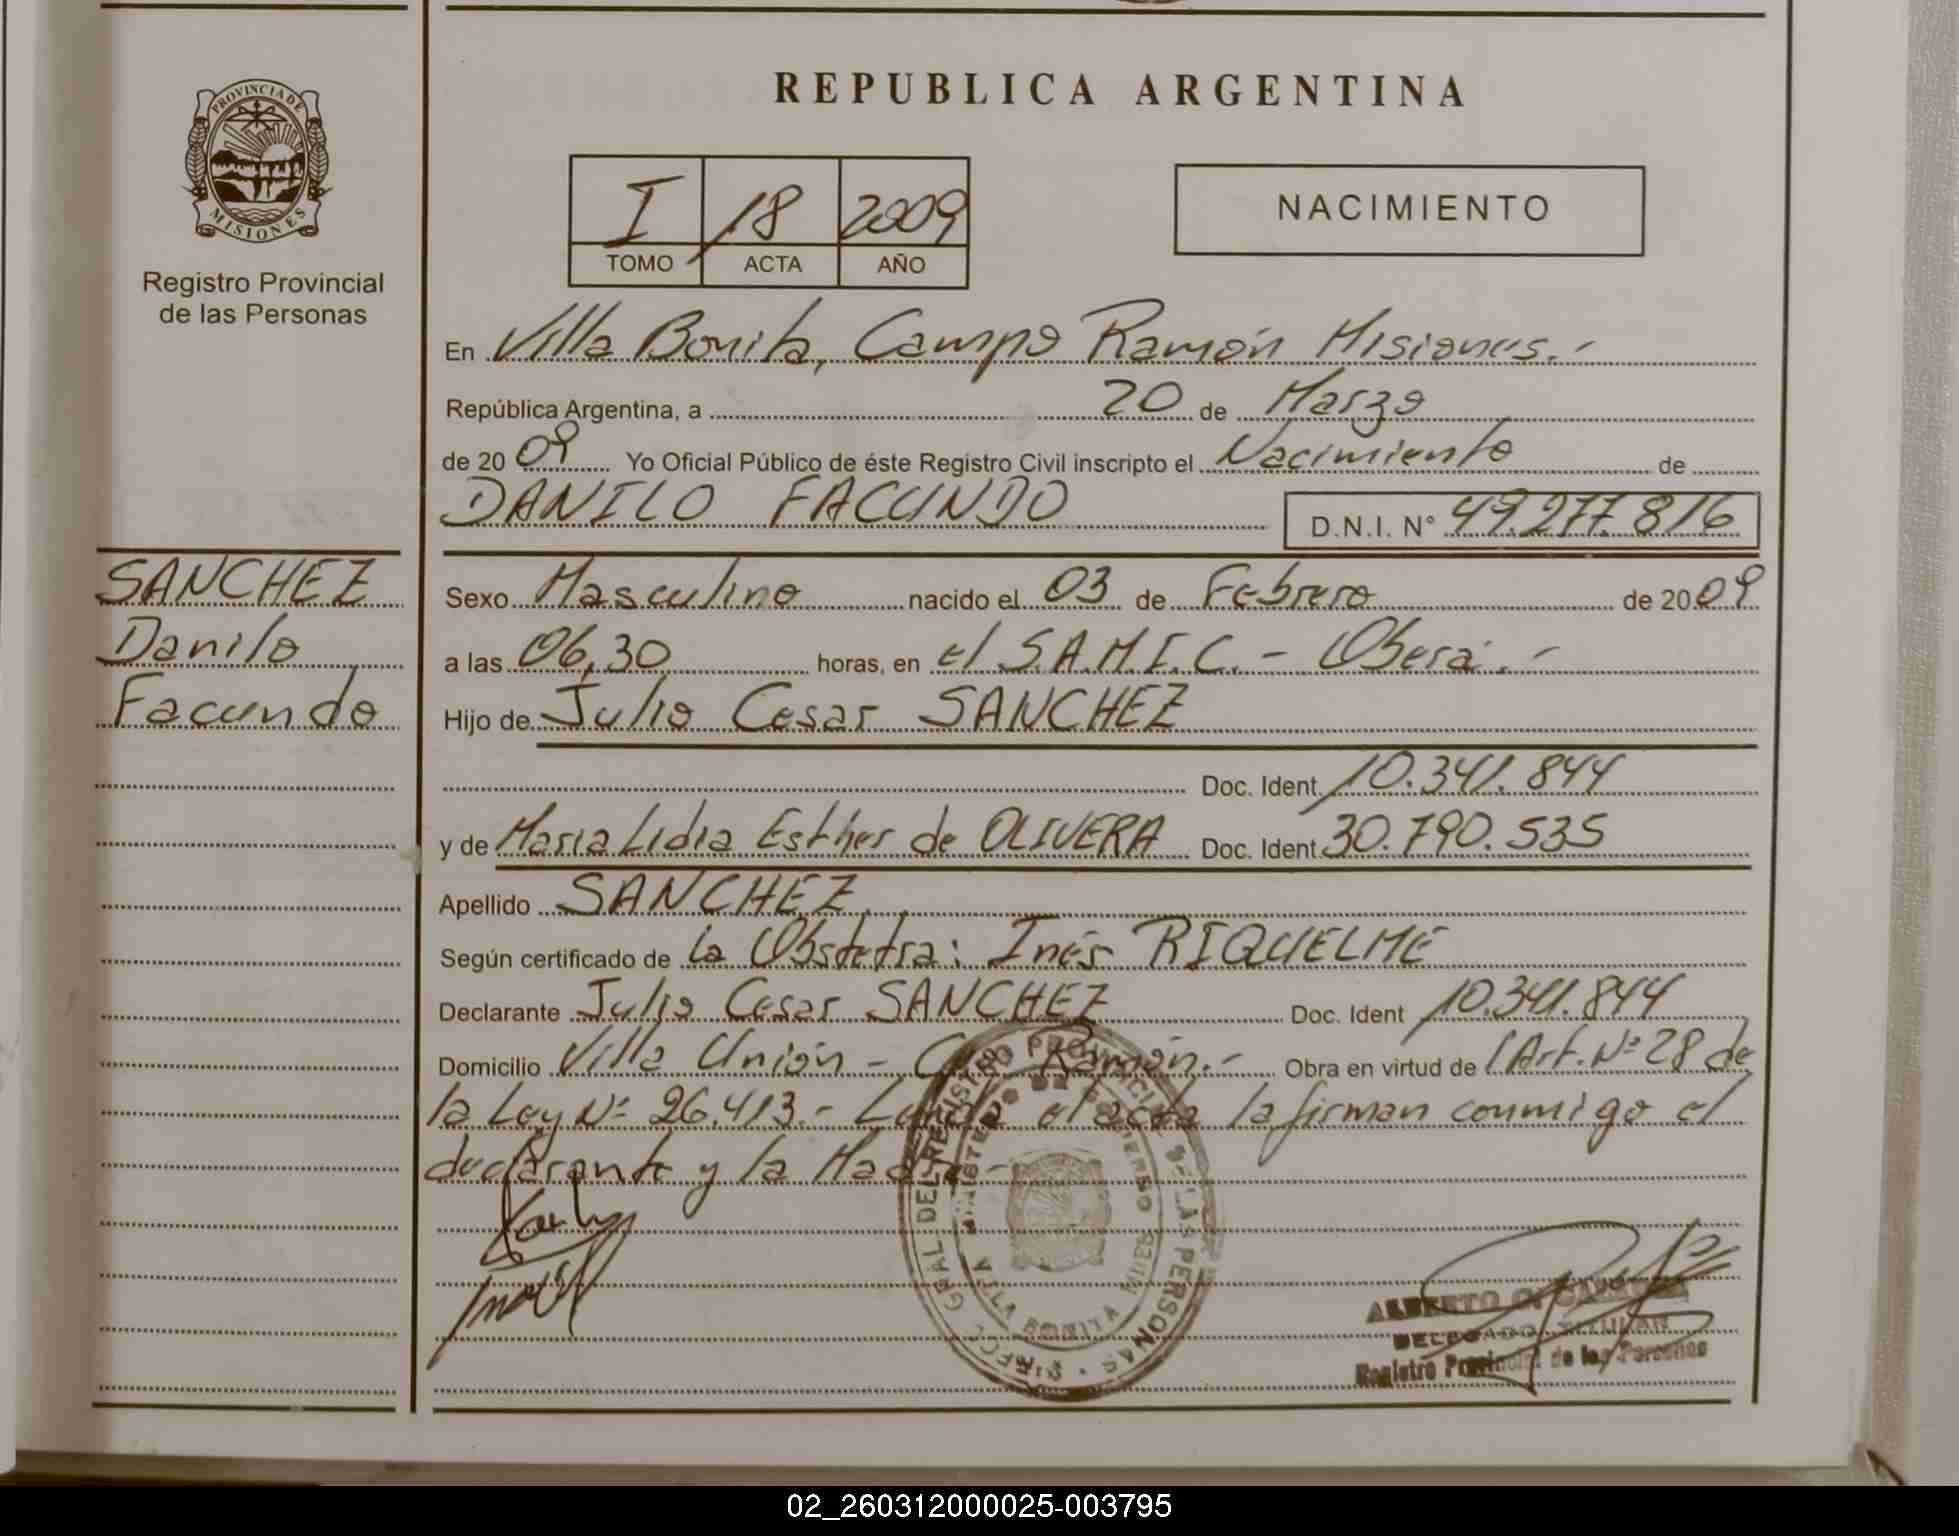 REPUBLICA ARGENTINA
PROVINCIA DE
MISIONES
Registro Provincial
de las Personas
I 18 2009
TOMO ACTA AÑO
NACIMIENTO
En Villa Bonita, Campo Ramón Misiones.-
República Argentina, a 20 de Marzo
de 2009 Yo Oficial Público de éste Registro Civil inscripto el Nacimiento de
DANILO FACUNDO D.N.I. N° 49.277.816
SANCHEZ
Danilo
Facundo
Sexo Masculino nacido el 03 de Febrero de 2009
a las 06,30 horas, en el S.A.M.I.C. - Oberá.-
Hijo de Julio Cesar SANCHEZ
Doc. Ident. 10.341.844
y de Maria Lidia Esther de OLIVERA Doc. Ident. 30.790.535
Apellido SANCHEZ
Según certificado de la Obstetra: Inés RIQUELME
Declarante Julio Cesar SANCHEZ Doc. Ident 10.341.844
Domicilio Villa Unión - Ramón.- Obra en virtud de l'Art. Nº 28 de
la Ley Nº 26.413.- el acta la firman conmigo el
declarante y la Madre.-
DIRECC. GRAL DEL REGISTRO PROVINCIAL DE LAS PERSONAS
VILLA BONITA
ALBERTO
DELEGADO TITULAR
Registro Provincial de las Personas
02_260312000025-003795